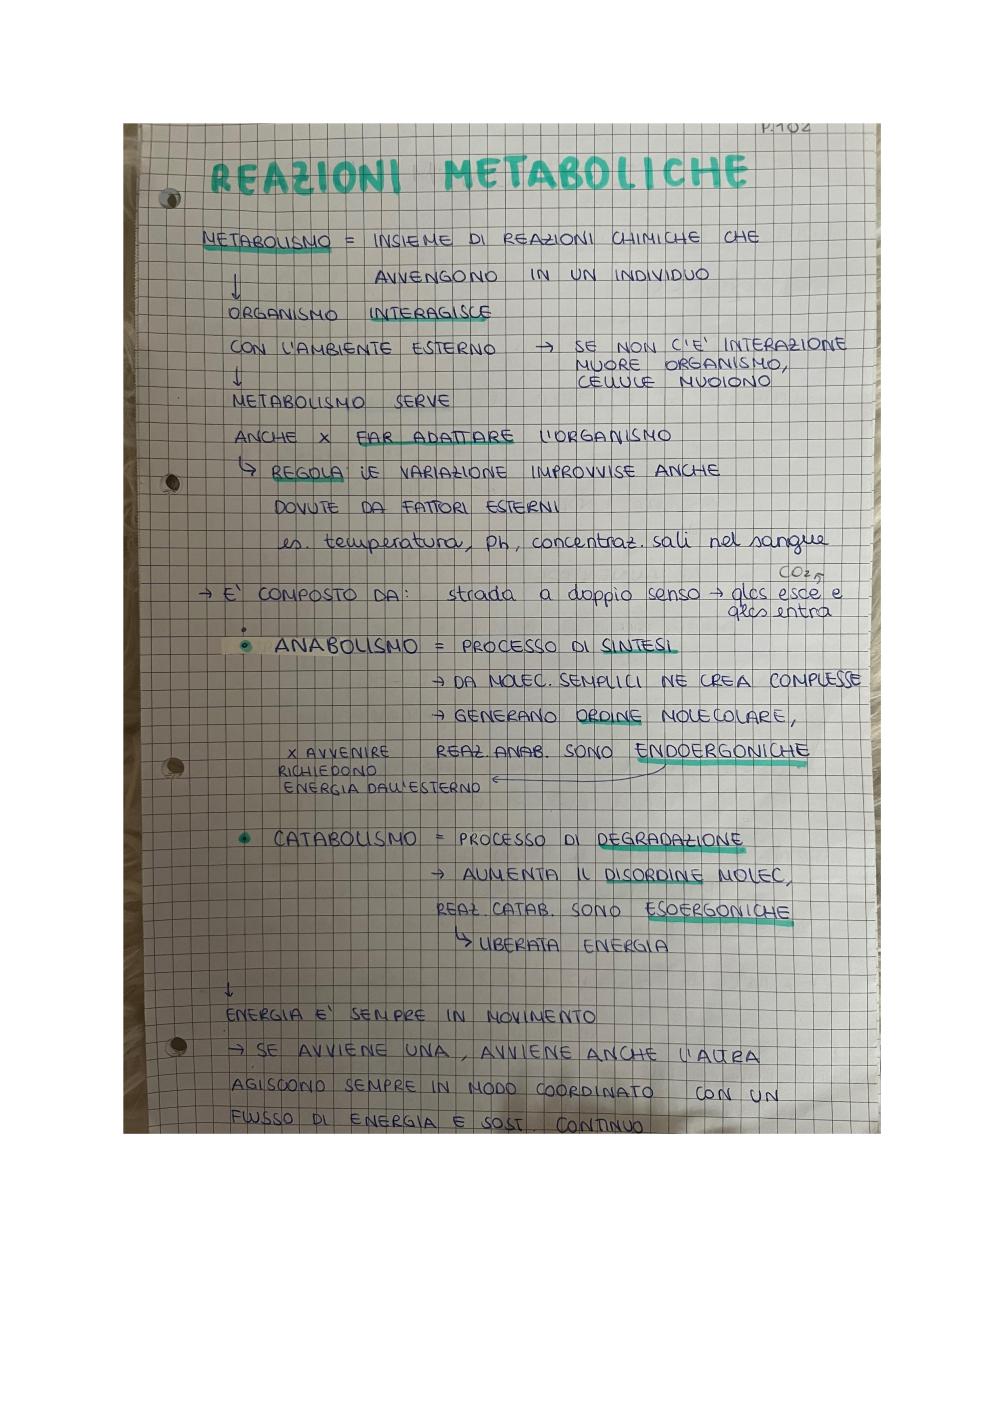 P.102
REAZIONI METABOLICHE
METABOLISMO = INSIEME DI REAZIONI CHIMICHE CHE
↓ AVVENGONO IN UN INDIVIDUO
ORGANISMO INTERAGISCE
CON L'AMBIENTE ESTERNO → SE NON C'E' INTERAZIONE
MUORE ORGANISMO,
↓ CELLULE MUOIONO
METABOLISMO SERVE
ANCHE X FAR ADATTARE L'ORGANISMO
↳ REGOLA LE VARIAZIONE IMPROVVISE ANCHE
DOVUTE DA FATTORI ESTERNI
es. temperatura, Ph, concentraz. sali nel sangue
CO2
→ E' COMPOSTO DA: strada a doppio senso → qlcs esce e
qlcs entra
• ANABOLISMO = PROCESSO DI SINTESI
→ DA MOLEC. SEMPLICI NE CREA COMPLESSE
→ GENERANO ORDINE MOLECOLARE,
X AVVENIRE REAZ. ANAB. SONO ENDOERGONICHE
RICHIEDONO
ENERGIA DALL'ESTERNO ←
• CATABOLISMO = PROCESSO DI DEGRADAZIONE
→ AUMENTA IL DISORDINE MOLEC,
REAZ. CATAB. SONO ESOERGONICHE
↳ LIBERATA ENERGIA
↓
ENERGIA E' SEMPRE IN MOVIMENTO
→ SE AVVIENE UNA, AVVIENE ANCHE L'ALTRA
AGISCONO SEMPRE IN MODO COORDINATO CON UN
FLUSSO DI ENERGIA E SOST. CONTINUO